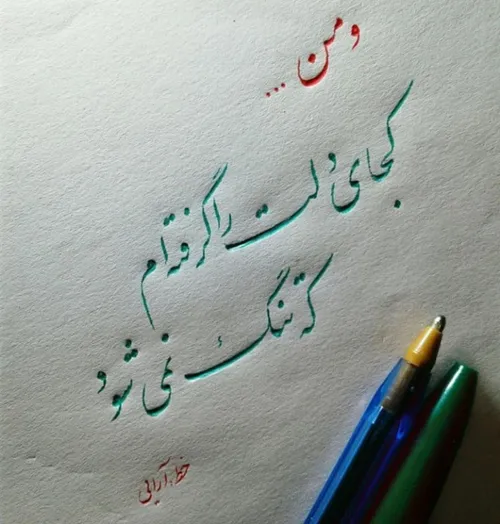 و من ...
کجای دلت را گرفته ام
که تنگ نمی شود
خط آرایی